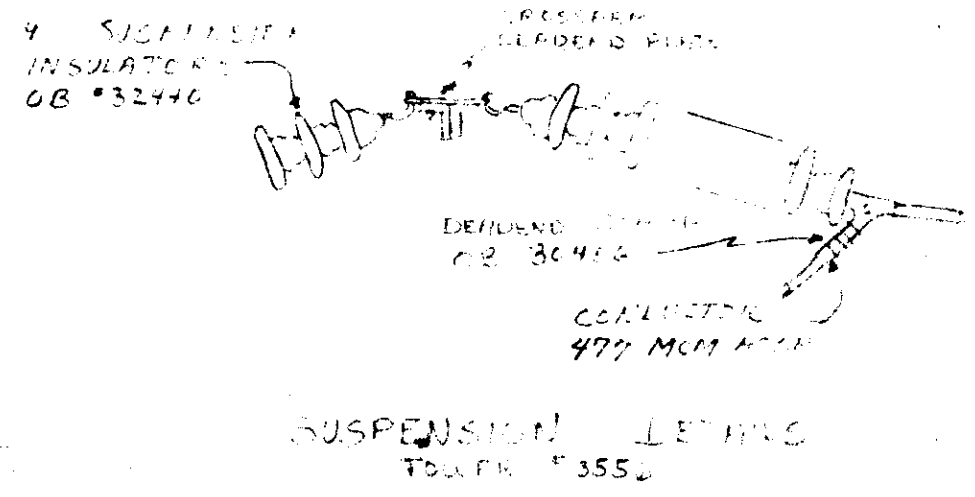 4 SUSPENSION
INSULATORS
OB #32440
CROSSARM
DEADEND PLATE
DEADEND
OB
CONDUCTOR
477 MCM
SUSPENSION DETAILS
TOWER #